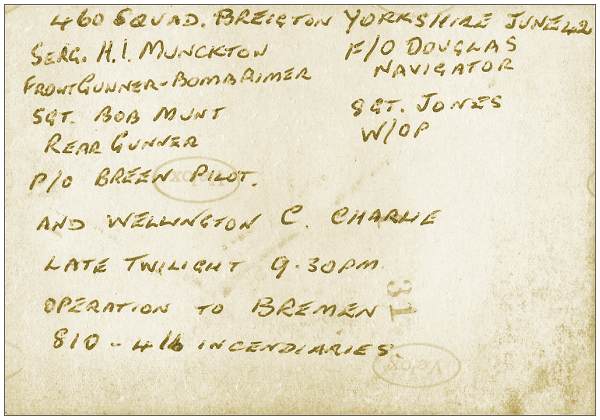 460 SQUAD. BREIGTON YORKSHIRE JUNE 42
SERG. H.I. MUNCKTON
FRONT GUNNER - BOMB AIMER
SGT. BOB MUNT
REAR GUNNER
P/O BREEN PILOT.
F/O DOUGLAS
NAVIGATOR
SGT. JONES
W/OP
AND WELLINGTON C. CHARLIE
LATE TWILIGHT 9.30PM
OPERATION TO BREMEN
810 - 4 lb INCENDIARIES.
31
Velox
Velox